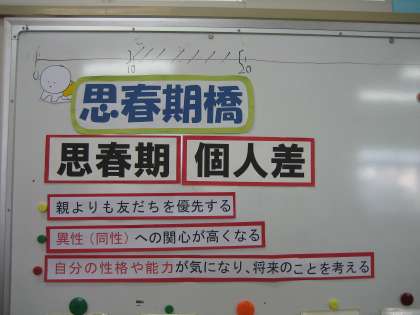 0 10 20
思春期橋
思春期 個人差
親よりも友だちを優先する
異性(同性)への関心が高くなる
自分の性格や能力が気になり、将来のことを考える